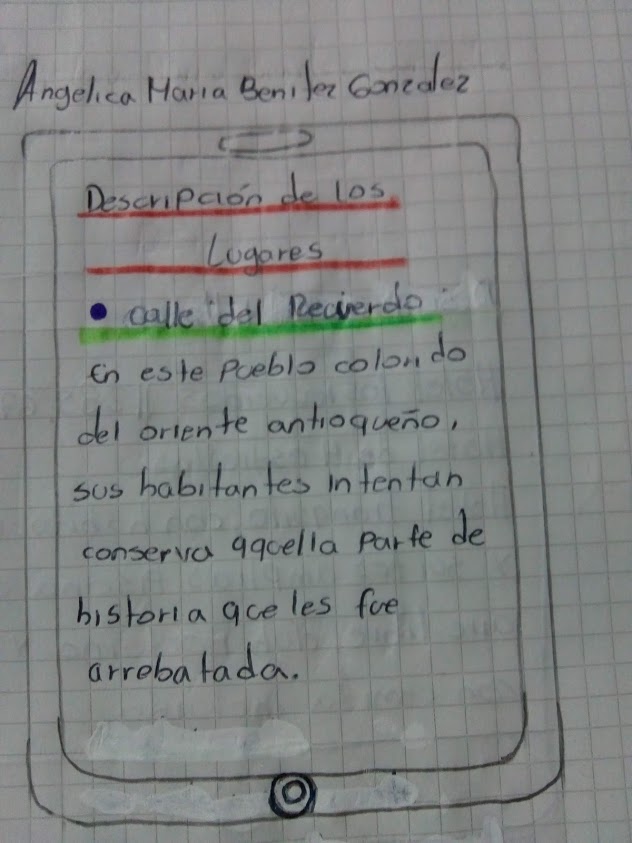 Angelica Maria Benitez Gonzalez
Descripción de los
Lugares
• calle del Recuerdo
En este pueblo colorido
del oriente antioqueño,
sus habitantes intentan
conserva aquella parte de
historia que les fue
arrebatada.